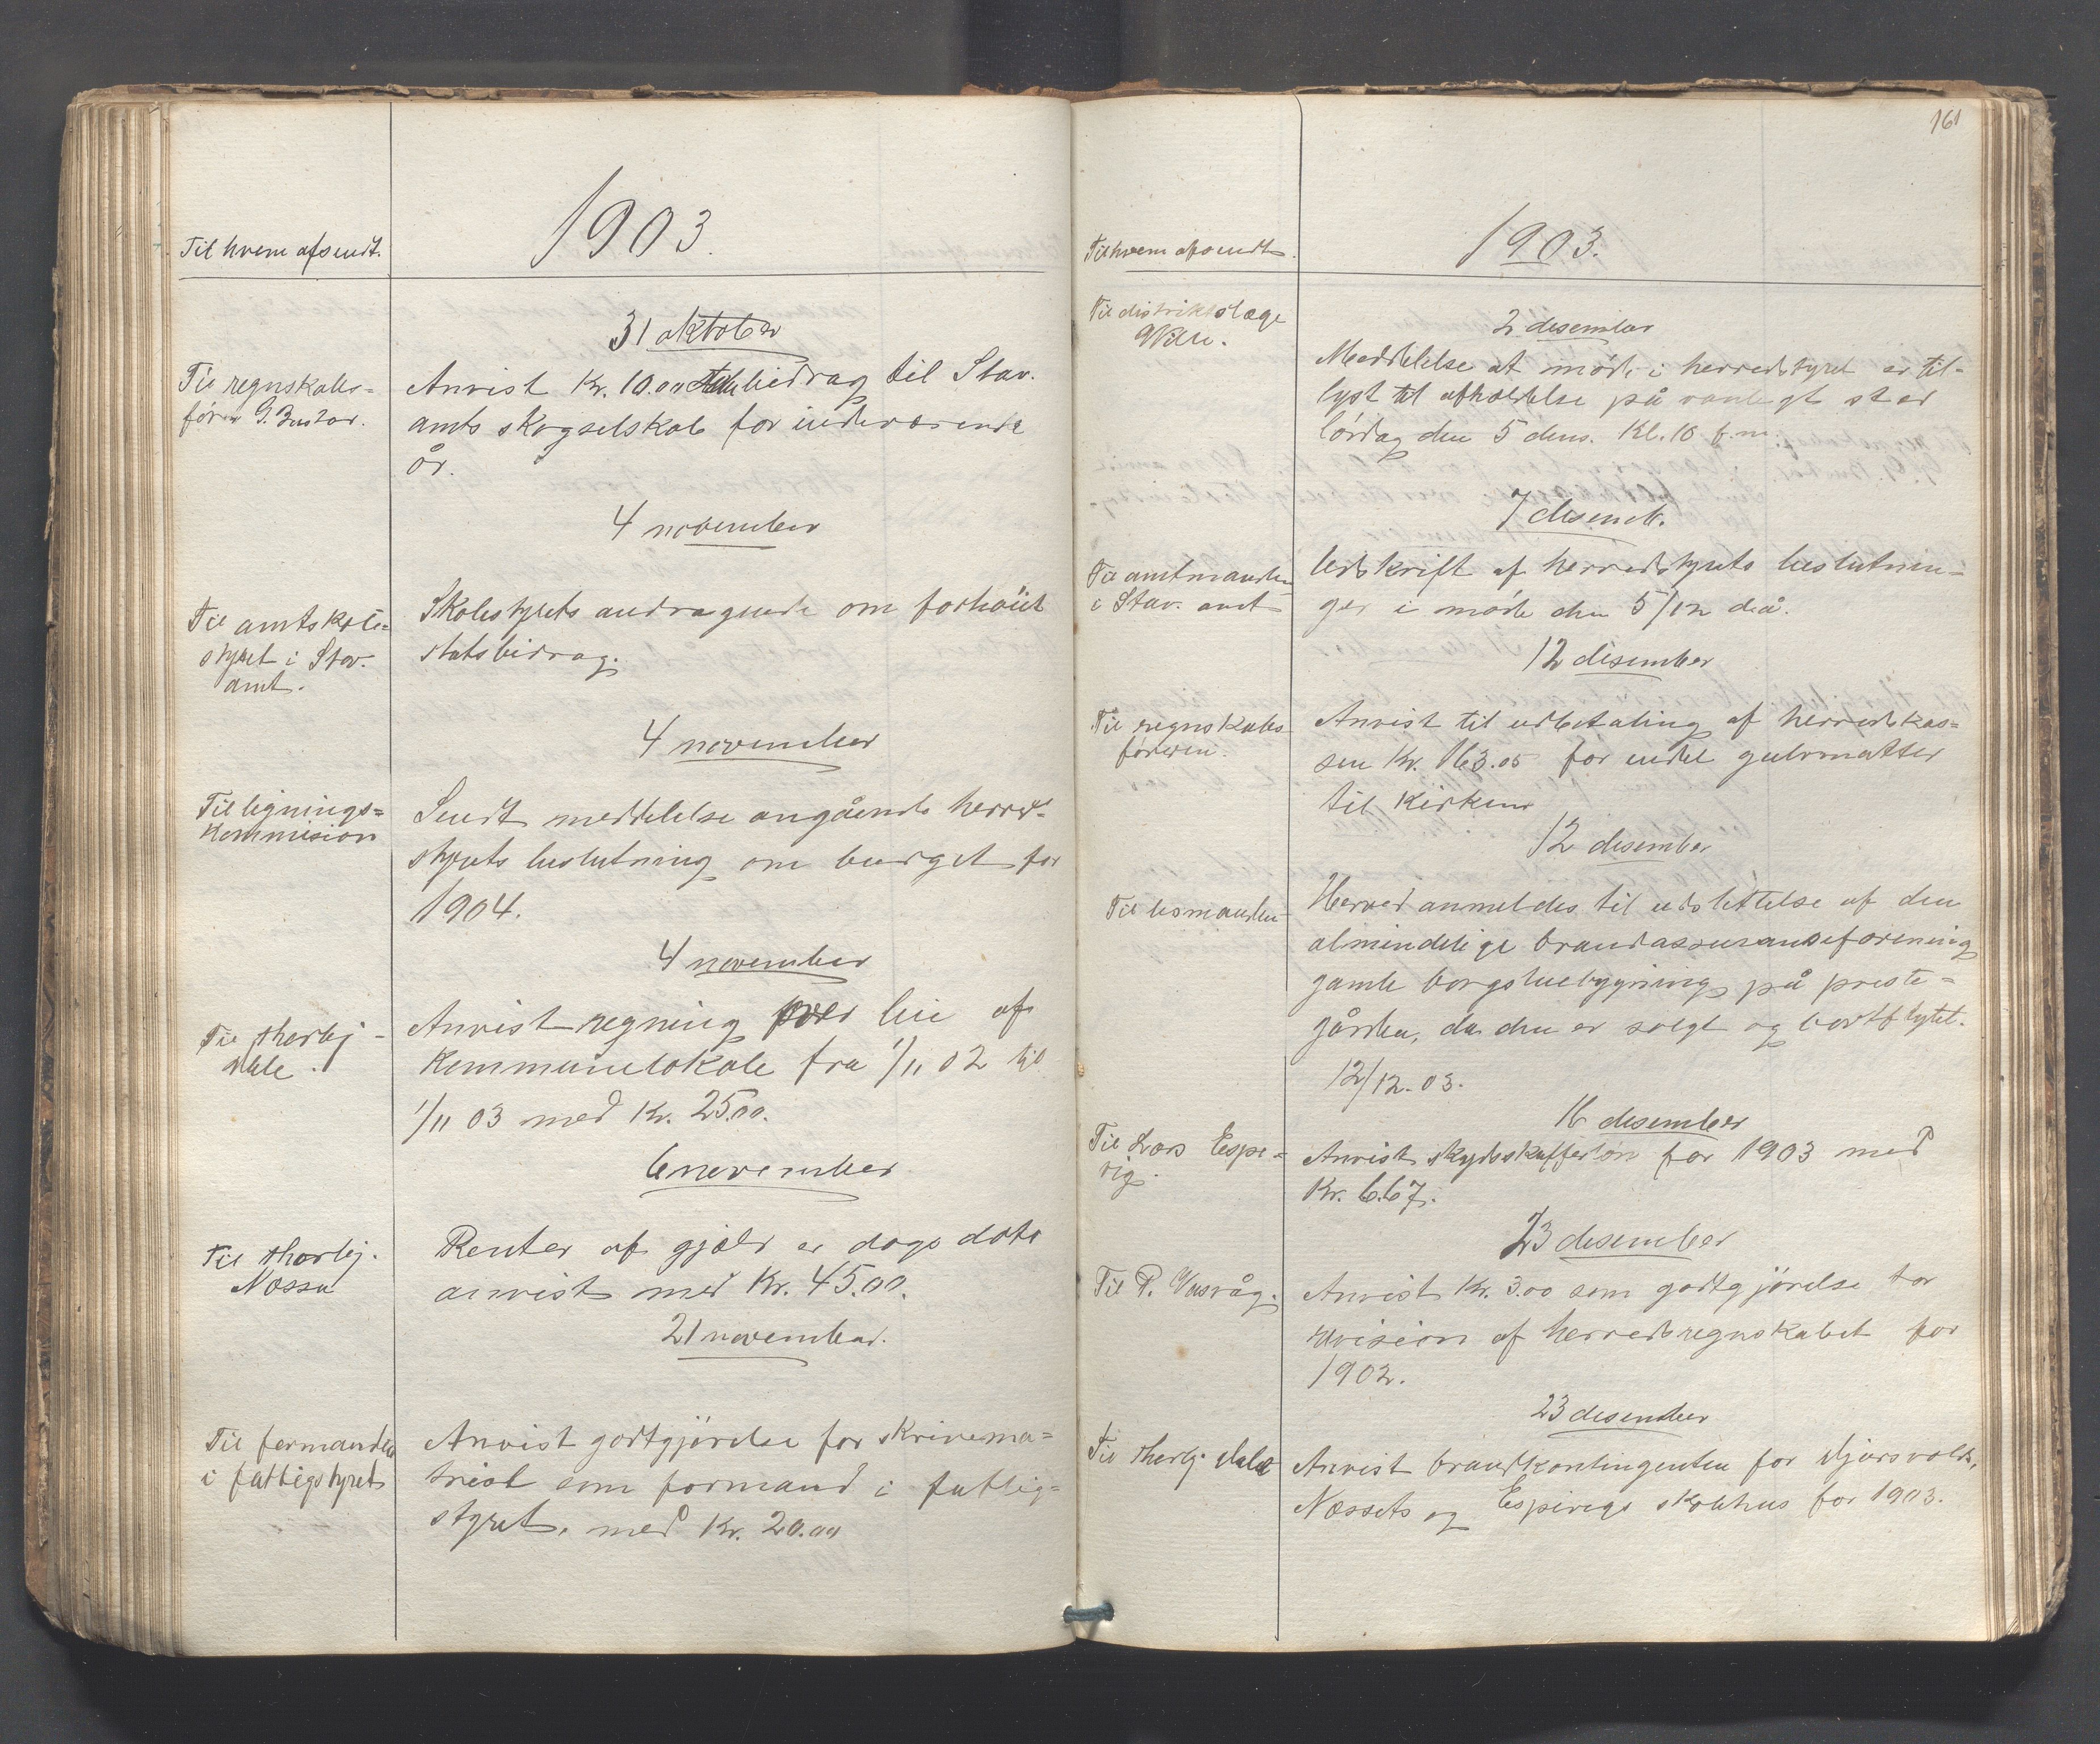 Til hvem afsendt.
1903.
31 oktober
Til regnskabs=
fører G. Buskar.
Anvist Kr. 10.00 bidrag til Stav.
amts skogselskab for indeværende
år.
4 november
Til amtskole=
styret i Stav.
amt.
Skolestyrets andragende om forhøiet
statsbidrag.
4 november
Til lignings=
kommision
Sendt meddelelse angående herred-
styrets beslutning om budget for
1904.
4 november
Til thorbj
dale.
Anvist regning over leie af
kommunelokale fra 1/11 02 til
1/11 03 med Kr. 25.00.
6 november
Til thorbj.
Næssa
Renter af gjæld er dags dato
anvist med Kr. 45.00.
21 november.
Til formanden
i fattigstyret
Anvist godtgjørelse for skrivema=
triel som formand i fattig=
styret, med Kr. 20.00
161
Til hvem afsendt.
1903.
Til distriktslæge
2 desember
Meddelelse at møde i herredstyret er til=
lyst til afholdelse på vanligt sted
lördag den 5 dens. Kl. 10 f.m.
7 desemb.
Til amtmanden
i Stav. amt
Udskrift af herredstyrets beslutnin=
ger i møde den 5/12 då.
12 desember
Til regnskabs
føreren.
Anvist til udbetaling af herredskas=
sen Kr. 163.05 for endel gulvmatter
til kirken
12 desember
Til lensmanden
Herved anmeldes til udslettelse af den
almindelige brandassuranseforening
gamle borgstuebygning på preste=
gården, da den er solgt og bortflytet.
12/12. 03.
16 desember
Til Lars Espe=
vig.
Anvist skydsskafferløn for 1903 med
Kr. 6.67.
23 desember
Til P. Vasvåg.
Anvist Kr. 3.00 som godtgjörelse for
revision af herredsregnskabet for
1902.
23 desember
Til thorbj. dale
Anvist brandkontingenten for
Næssets og Espevigs skolehus for 1903.